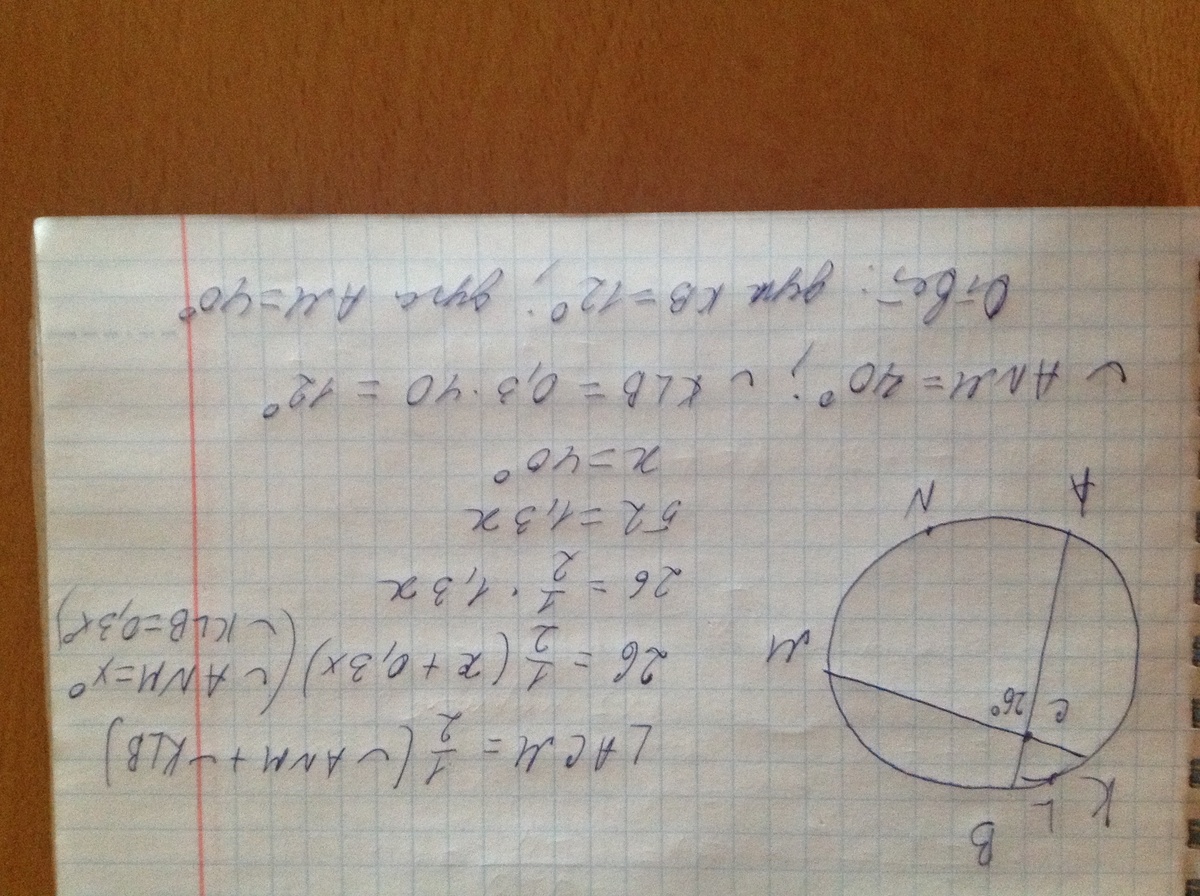 K
L
B
C
26°
M
A
N
∠ACM = 1/2 (◡ANM + ◡KLB)
26 = 1/2 (x + 0,3x) (◡ANM = x°
◡KLB = 0,3x°)
26 = 1/2 · 1,3x
52 = 1,3x
x = 40°
◡ANM = 40°; ◡KLB = 0,3 · 40 = 12°
Ответ: дуга KB = 12°; дуга AM = 40°